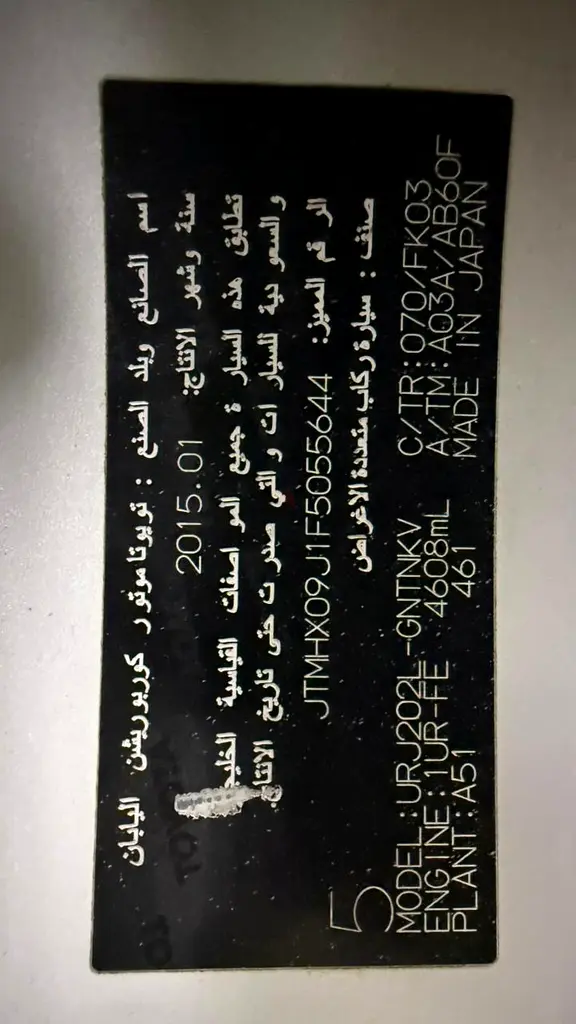 اسم الصانع وبلد الصنع : تويوتا موتور كوربوريشن اليابان
سنة وشهر الانتاج: 2015.01
تطابق هذه السيارة جميع المواصفات القياسية الخليج
والسعودية للسيارات والتي صدرت حتى تاريخ الانتاج.
الرقم المميز: JTMHX09J1F5055644
صنف : سيارة ركاب متعددة الاغراض
5
MODEL:URJ202L-GNTNKV C/TR:070/FK03
ENGINE:1UR-FE 4608mL A/TM:A03A/AB60F
PLANT:A51 461 MADE IN JAPAN